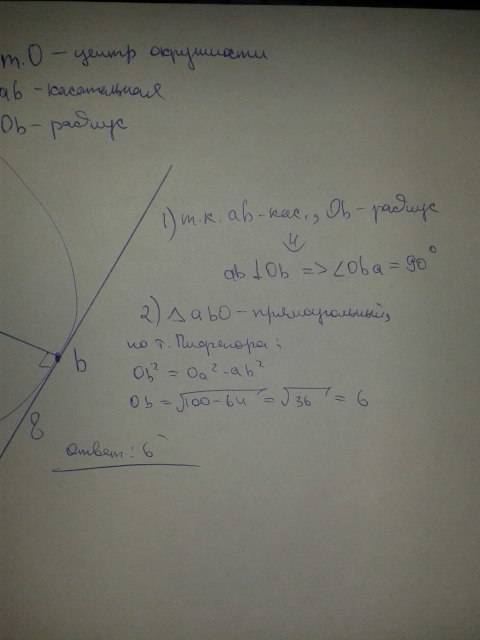 т.О – центр окружности
ab – касательная
Ob – радиус
1) т.к. ab – кас., Ob – радиус
⇓
ab ⊥ Ob => ∠Oba = 90°
2) △ abO – прямоугольный,
по т. Пифагора:
Ob² = Oa² - ab²
Ob = √100-64 = √36 = 6
b
8
Ответ: 6